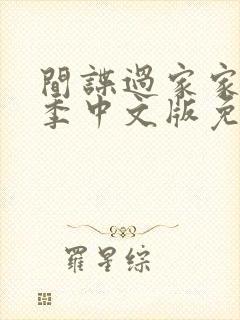 間諜過家家
季中文版免
羅星綜